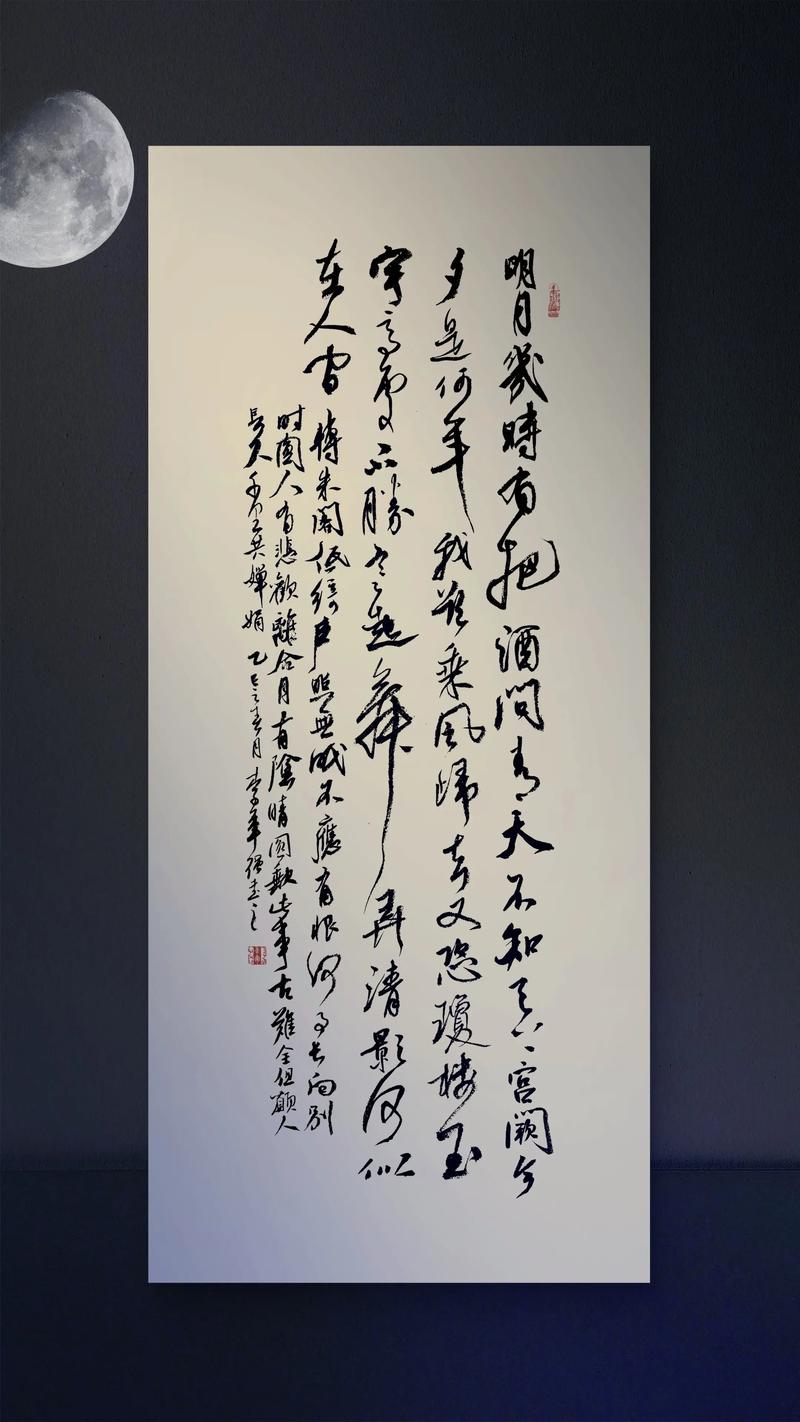 明月幾時有把酒問青天不知天上宮闕今
夕是何年我欲乘風歸去又恐瓊樓玉
宇高處不勝寒起舞弄清影何似
在人間
轉朱閣低綺戶照無眠不應有恨何事長向別
时圓人有悲歡離合月有陰晴圓缺此事古難全但願人
長久千里共嬋娟 乙巳 月 李軍强書之